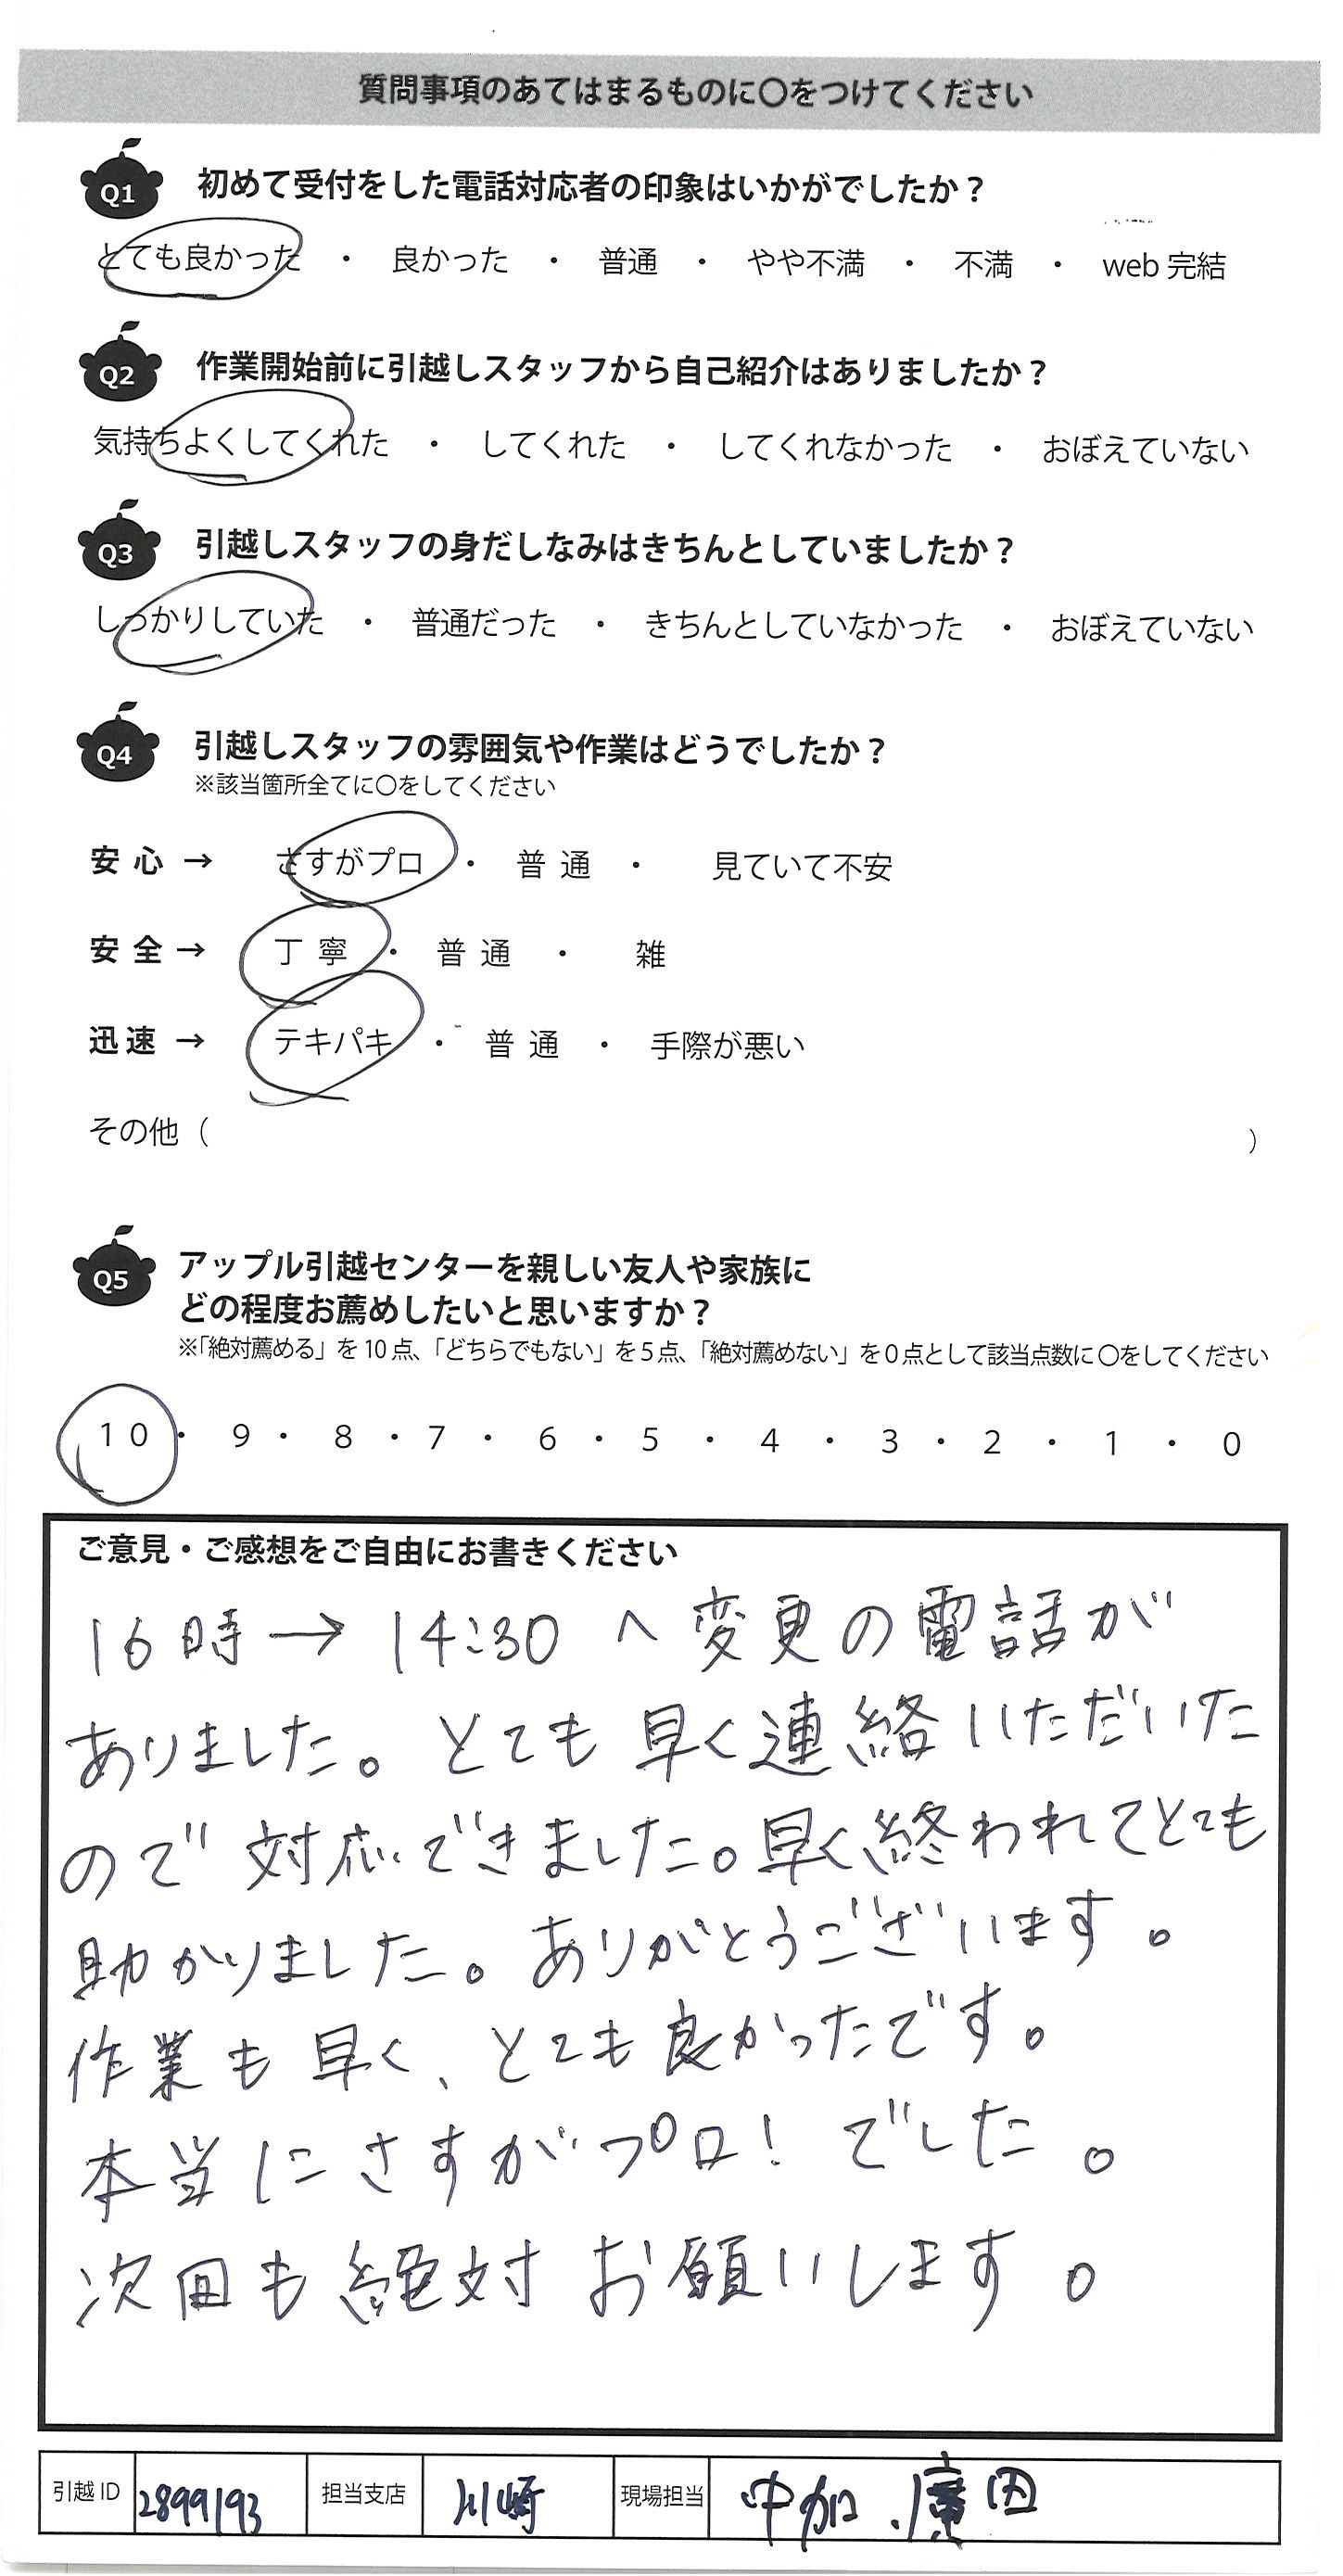 質問事項のあてはまるものに〇をつけてください
Q1 初めて受付をした電話対応者の印象はいかがでしたか？
とても良かった ・ 良かった ・ 普通 ・ やや不満 ・ 不満 ・ web 完結
Q2 作業開始前に引越しスタッフから自己紹介はありましたか？
気持ちよくしてくれた ・ してくれた ・ してくれなかった ・ おぼえていない
Q3 引越しスタッフの身だしなみはきちんとしていましたか？
しっかりしていた ・ 普通だった ・ きちんとしていなかった ・ おぼえていない
Q4 引越しスタッフの雰囲気や作業はどうでしたか？
※該当箇所全てに〇をしてください
安心 → さすがプロ ・ 普通 ・ 見ていて不安
安全 → 丁寧 ・ 普通 ・ 雑
迅速 → テキパキ ・ 普通 ・ 手際が悪い
その他（ ）
Q5 アップル引越センターを親しい友人や家族に
どの程度お薦めしたいと思いますか？
※「絶対薦める」を10点、「どちらでもない」を5点、「絶対薦めない」を0点として該当点数に〇をしてください
10 ・ 9 ・ 8 ・ 7 ・ 6 ・ 5 ・ 4 ・ 3 ・ 2 ・ 1 ・ 0
ご意見・ご感想をご自由にお書きください
16時→14:30へ変更の電話が
ありました。とても早く連絡いただいた
ので対応できました。早く終われてとても
助かりました。ありがとうございます。
作業も早く、とても良かったです。
本当にさすがプロ！でした。
次回も絶対お願いします。
引越ID 2899193 担当支店 川崎 現場担当 中加.廣田